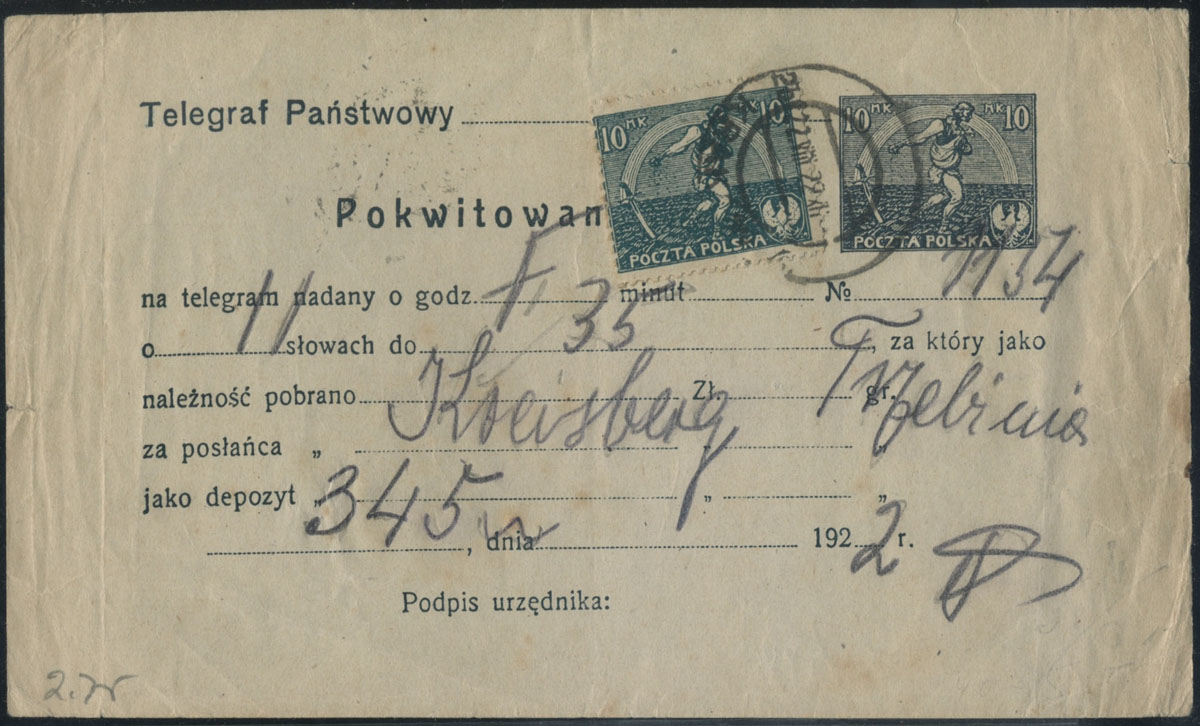 Telegraf Państwowy
10 MK MK 10
POCZTA POLSKA
10 MK MK 10
POCZTA POLSKA
Pokwitowan
na telegram nadany o godz. minut № 1134
o 11 słowach do 35, za który jako
należność pobrano Kreisberg Zł. Trzebinia gr.
za posłańca „ „ „
jako depozyt „ 345 „ „
, dnia 1922 r.
Podpis urzędnika: